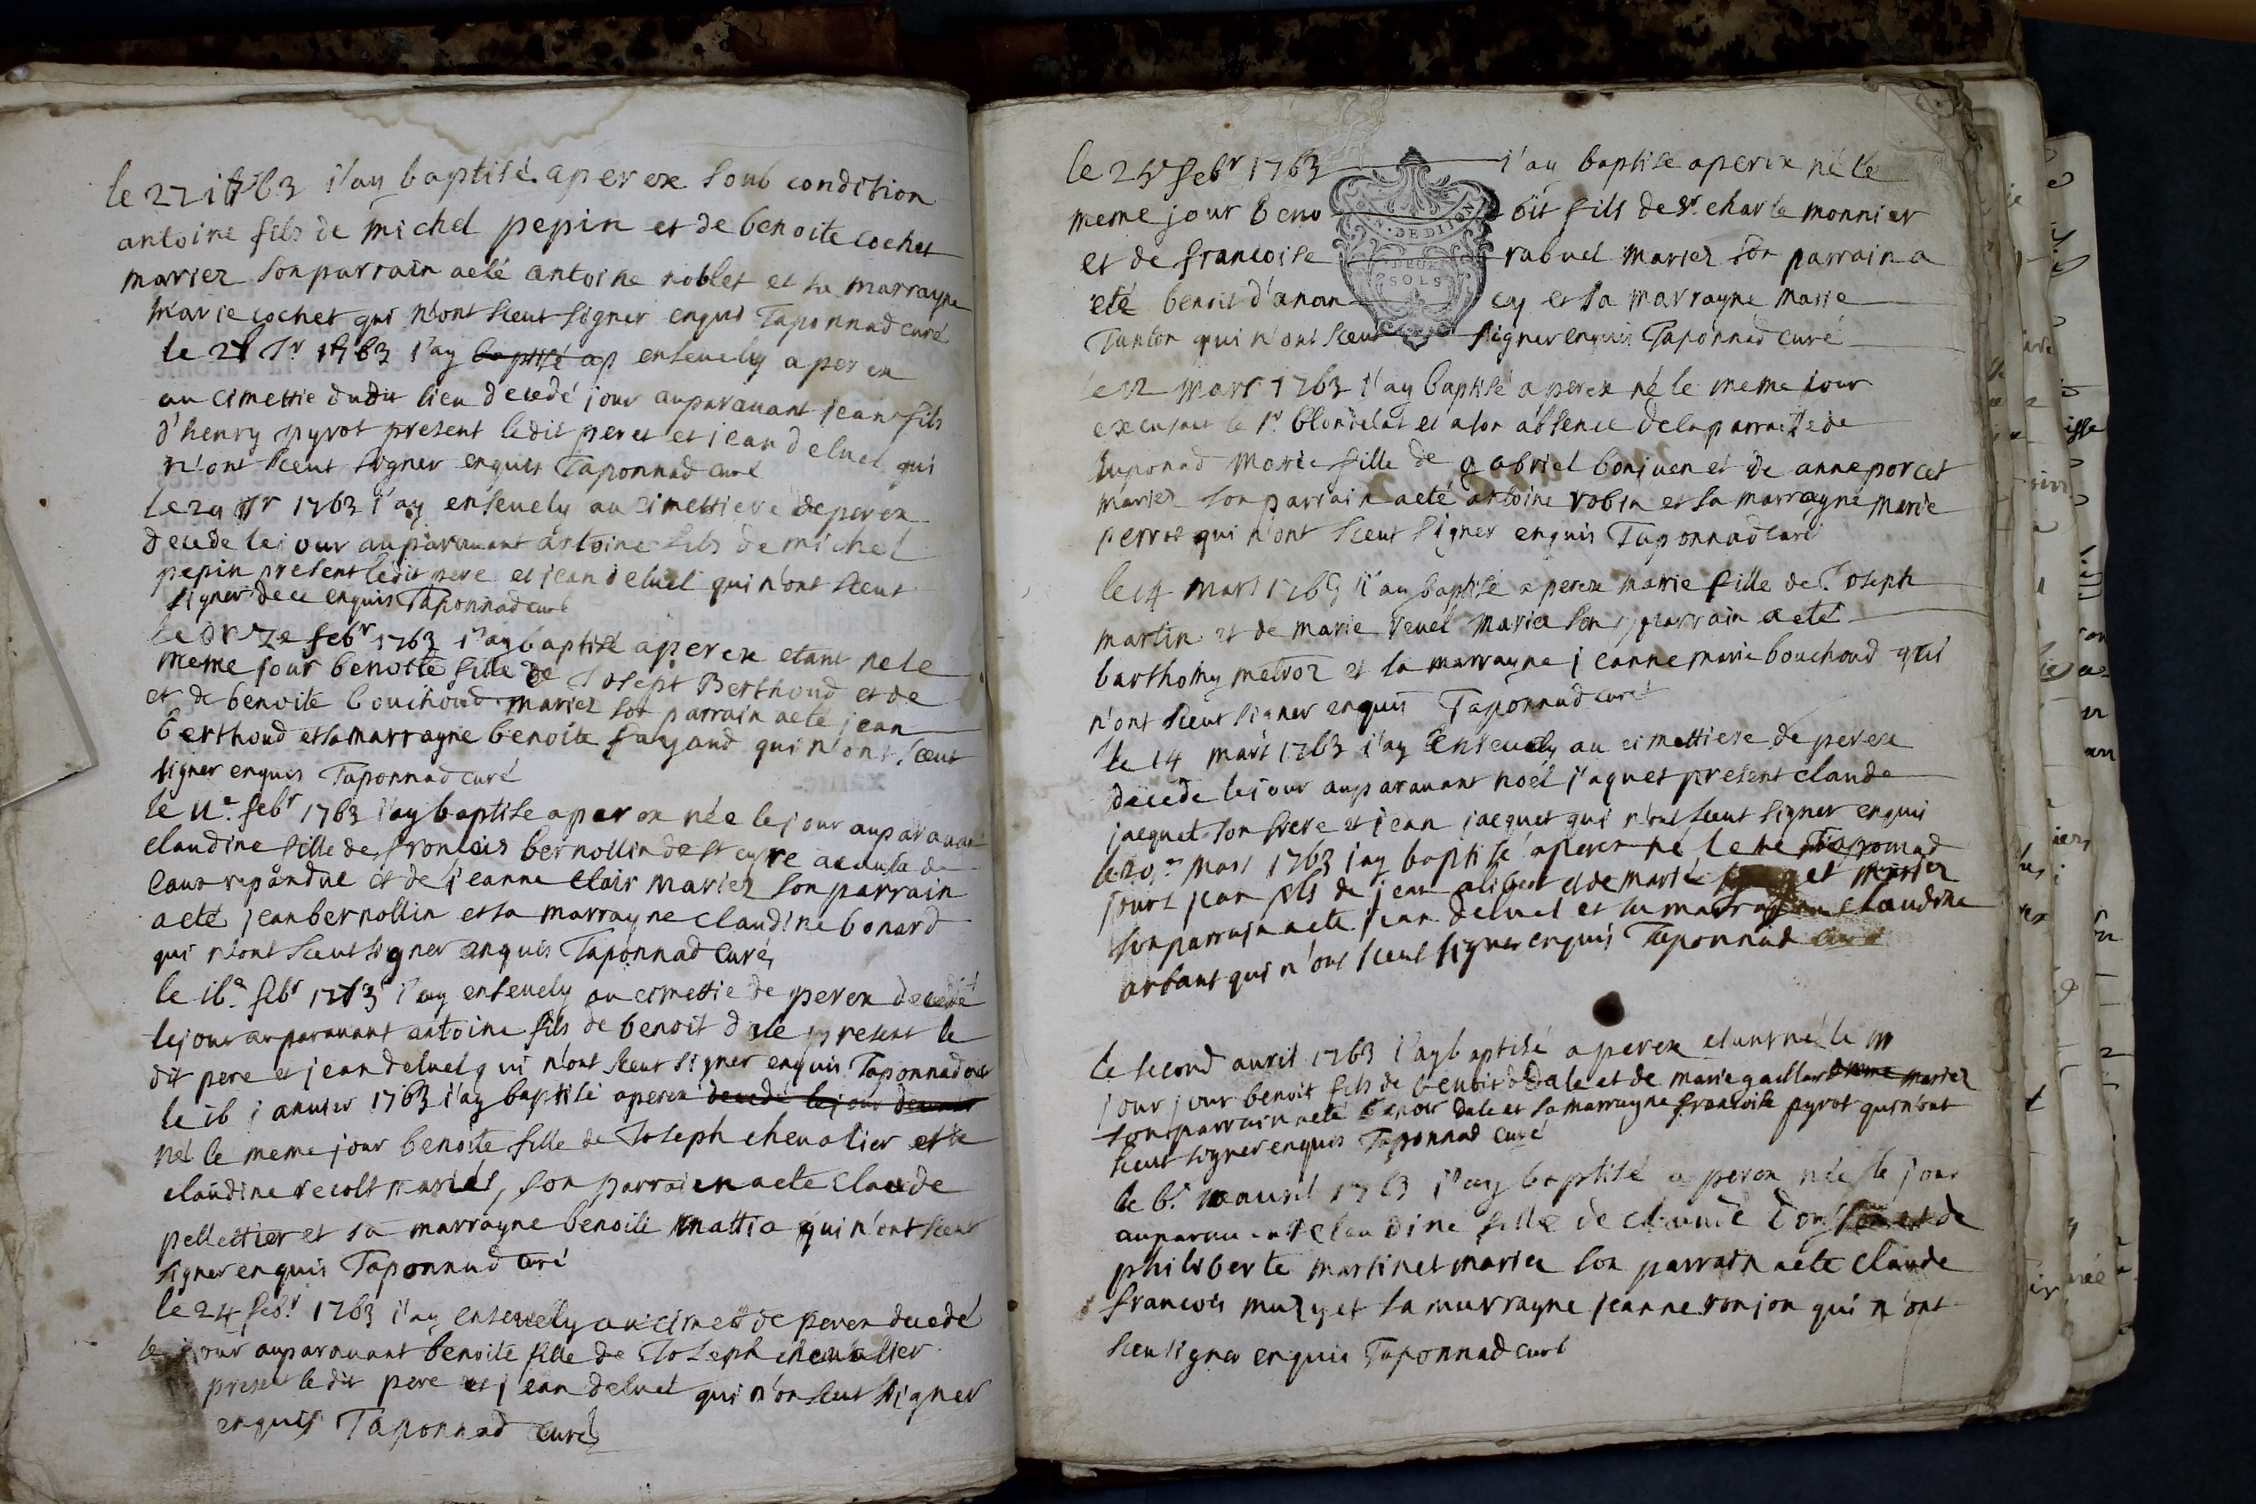 le 27 1763 i'ay baptisé a perex soub condition
antoine fils de michel pepin et de benoite cochet
mariez son parrain aeté antoine noblet et sa marrayne
marie cochet qui n'ont sceut signer enquis Taponnad curé
le 28 Jr 1763 i'ay baptisé ap enseuely a perex
au cimettie dudit lieu decedé jour auparauant jean fils
d'henry pyrot present ledit pere et jean deluel qui
n'ont sceut signer enquis Taponnad curé
le 29 Jr 1763 i'ay enseuely au cimettiere de perex
decede le jour auparauant antoine fils de michel
pepin present ledit pere et jean deluel qui n'ont sceut
signer de ce enquis Taponnad curé
le onze febr 1763 i'ay baptisé a perex etant né le
meme jour benoite fille de Joseph Berthoud et de
et de benoite bouchoud mariez son parrain aeté jean
berthoud et sa marrayne benoite fayaud qui n'ont sceut
signer enquis Taponnad curé
le 11e febr 1763 i'ay baptise a perex née le jour auparauant
claudine fille de francois bernollin de st cyre a causa de
l'aux repandue et de jeanne clair mariez son parrain
aeté jean bernollin et sa marrayne claudine bonard
qui n'ont sceut signer enquis Taponnad curé
le 16e febr 1763 i'ay enseuely au cimettie de perex decedé
le jour auparauant antoine fils de benoit dale present le
dit pere et jean deluel qui n'ont sceut signer enquis Taponnad curé
le 16 januier 1763 i'ay baptisé a perex decedé le jour
né le meme jour benoite fille de Joseph cheualier et de
claudine recolt mariés, son parrain aeté claude
pellettier et sa marrayne benoite mattia qui n'ont sceut
signer enquis Taponnad curé
le 24 febr 1763 i'ay enseuely au cimett de perex decedé
le jour auparauant benoite fille de Joseph cheualier
present ledit pere et jean deluel qui n'on sceut signer
enquis Taponnad curé
le 25 febr 1763 i'ay baptise a perex né le
meme jour beno oit fils de sr. charle monnier
GEN. DE DIJON
et de francoise rabuel mariez son parrain a
DEUX SOLS
eté benoit d'anan cy et sa marrayne marie
Tanton qui n'ont sceut signer enquis Taponnad curé
le 12 mars 1763 i'ay baptisé a perex né le meme jour
excusant le sr blondelat et a son absence de la parroisse de
luponad marie fille de gabriel bonjuen et de anne porcet
mariez son parrain aeté antoine robin et sa marrayne marie
perrot qui n'ont sceut signer enquis Taponnad curé
le 14 mars 1763 i'ay baptisé a perex marie fille de Joseph
martin et de marie reuel mariez son parrain aeté
bartholmy meluoz et sa marrayne jeanne marie bouchoud qui
n'ont sceut signer enquis Taponnad curé
le 14 mars 1763 i'ay enseuely au cimettiere de perex
decede le jour auparauant noel jaquet present claude
jacquet son frere et jean jacquet qui n'ont sceut signer enquis
le 20e mars 1763 jay baptisé a perex né le Taponnad
jour jean fils de jean alibert et de marie et mariez
son parrain aeté jean deluel et sa marrayne claudine
arbant qui n'ont sceut signer enquis Taponnad curé
le second auril 1763 i'ay baptisé a perex etant né le m
jour jour benoit fils de benoit dale et de marie gaillard meme mariez
son parrain aeté benoit dale et sa marrayne francoise pyrot qui n'ont
sceut signer enquis Taponnad curé
le 6e auril 1763 i'ay baptisé a perex née le jour
auparauant claudine fille de claude et de
philiberte martinet mariez son parrain aeté claude
francois muzy et sa murrayne jeanne ronjon qui n'ont
sceu signer enquis Taponnad curé